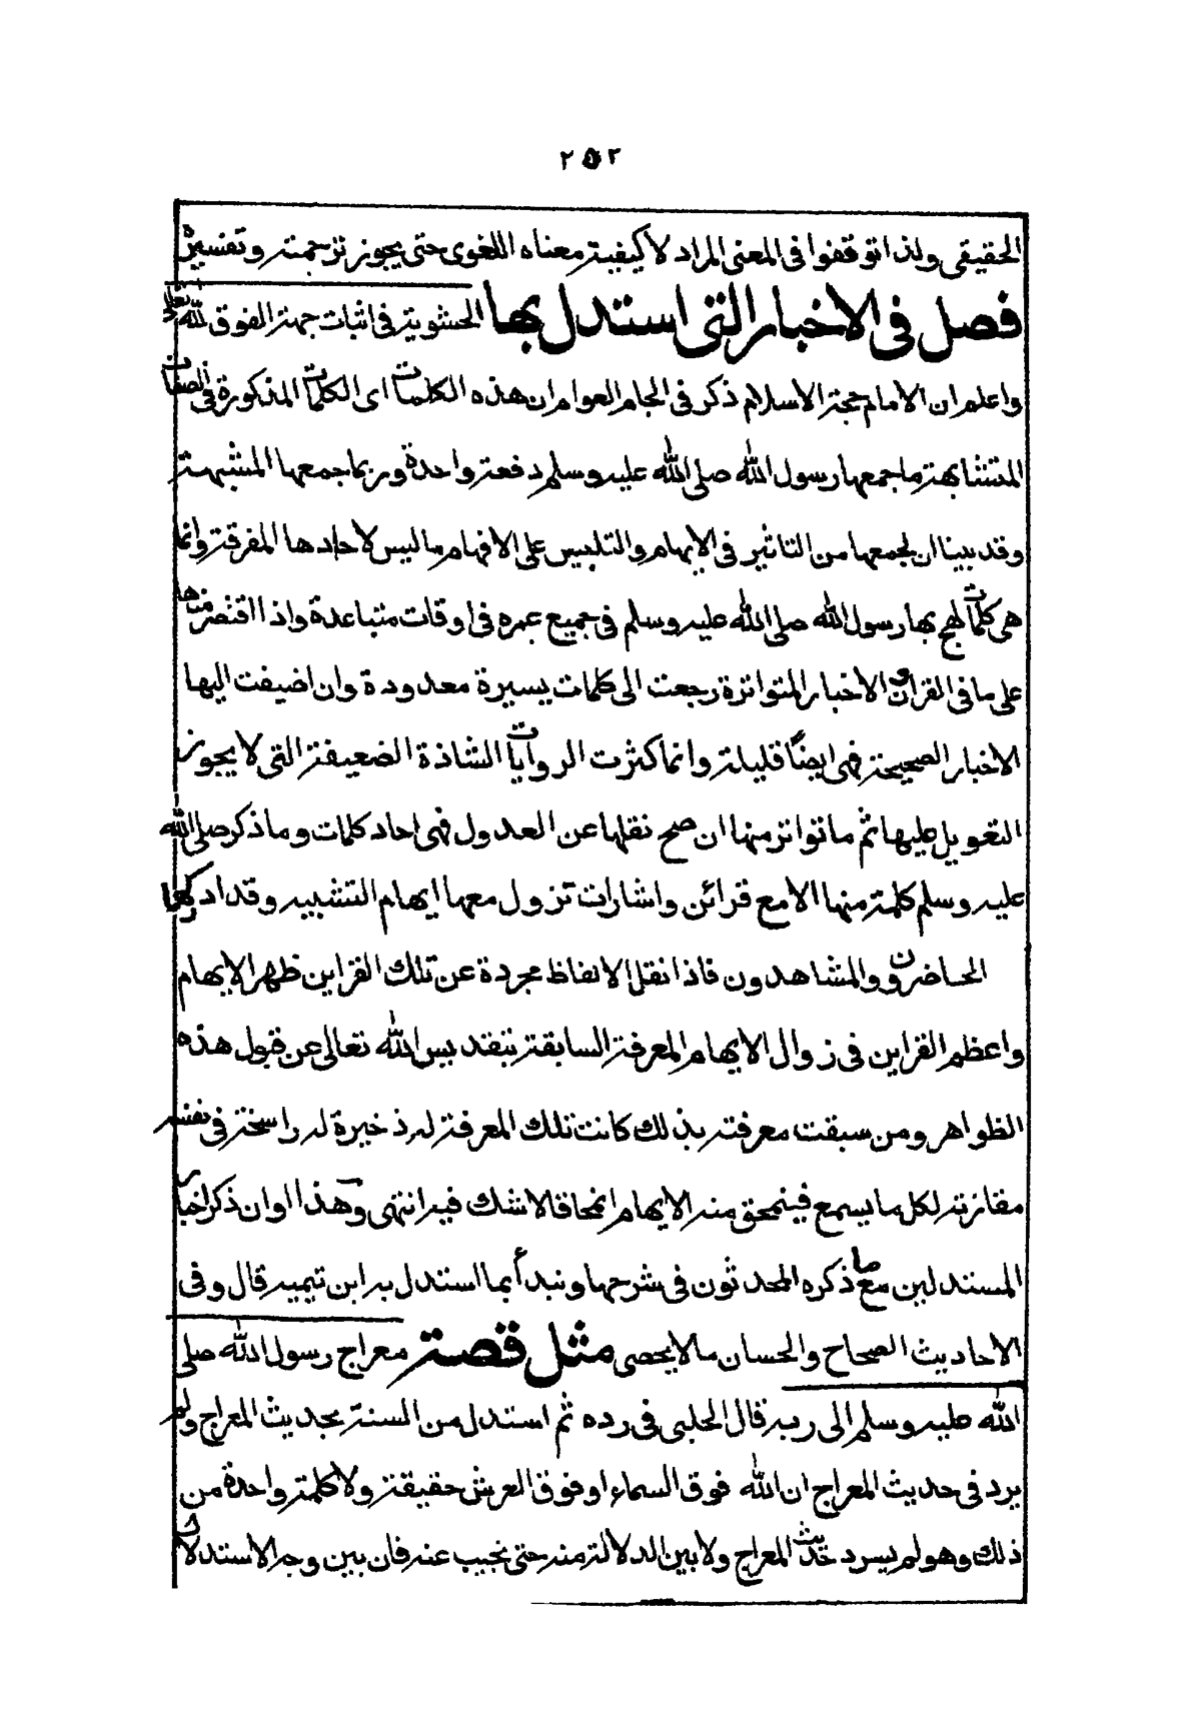 ٢٥٢
الحقيقى ولذا توقفوا فى المعنى المراد لا كيفية معناه اللغوى حتى يجوز ترجمته وتفسيره
فصل فى الاخبار التى استدل بها الحشوية فى اثبات جهة الفوق لله تعالى
واعلم ان الامام حجة الاسلام ذكر فى الجام العوام ان هذه الكلمات اى الكلمات المذكورة فى الصفات
المتشابهة ما جمعها رسول الله صلى الله عليه وسلم دفعة واحدة وربما جمعها المشبهة
وقد بينا ان لجمعها من التاثير فى الايهام والتلبيس على الافهام ما ليس لاحادها المفرقة وانما
هى كلمات لهج بها رسول الله صلى الله عليه وسلم فى جميع عمره فى اوقات متباعدة واذا اقتصر منها
على ما فى القران والاخبار المتواترة رجعت الى كلمات يسيرة معدودة وان اضيفت اليها
الاخبار الصحيحة فهى ايضًا قليلة وانما كثرت الروايات الشاذة الضعيفة التى لا يجوز
التعويل عليها ثم ما تواتر منها ان صح نقلها عن العدول فهى احاد كلمات وما ذكر صلى الله
عليه وسلم كلمة منها الا مع قرائن واشارات تزول معها ايهام التشبيه وقد ادركها
الحاضرون والمشاهدون فاذا نقل الالفاظ مجردة عن تلك القراين ظهر الايهام
واعظم القراين فى زوال الايهام المعرفة السابقة بتقديس الله تعالى عن قبول هذه
الظواهر ومن سبقت معرفته بذلك كانت تلك المعرفة له ذخيرة له راسخة فى نفسه
مقارنة لكل ما يسمع فينمحق منه الايهام انمحاقا لا شك فيه انتهى وهذا اوان ذكر اخبار
المستدلين مع ما ذكره المحدثون فى شرحها ونبدأ بما استدل به ابن تيميه قال وفى
الاحاديث الصحاح والحسان ما لا يحصى مثل قصة معراج رسول الله صلى
الله عليه وسلم الى ربه قال الحلبى فى رده ثم استدل من السنة بحديث المعراج ولم
يرد فى حديث المعراج ان الله فوق السماء او فوق العرش حقيقة ولا كلمة واحدة من
ذلك وهو لم يسرد حديث المعراج ولا بين الدلالة منه حتى نجيب عنه فان بين وجه الاستدلال